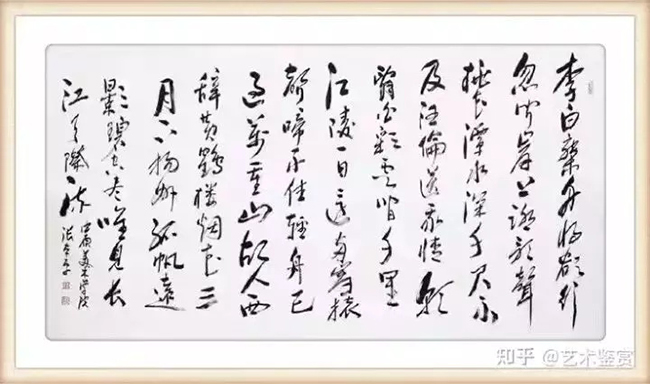 李白乘舟将欲行
忽闻岸上踏歌聲
桃花潭水深千尺不
及汪倫送我情朝
辞白彩雲间千里
江陵一日還兩岸猿
聲啼不住輕舟已
過萬重山故人西
辞黄鶴楼烟花三
月下揚州孤帆遠
影碧空尽唯見长
江天際流
知乎 @艺术鉴赏